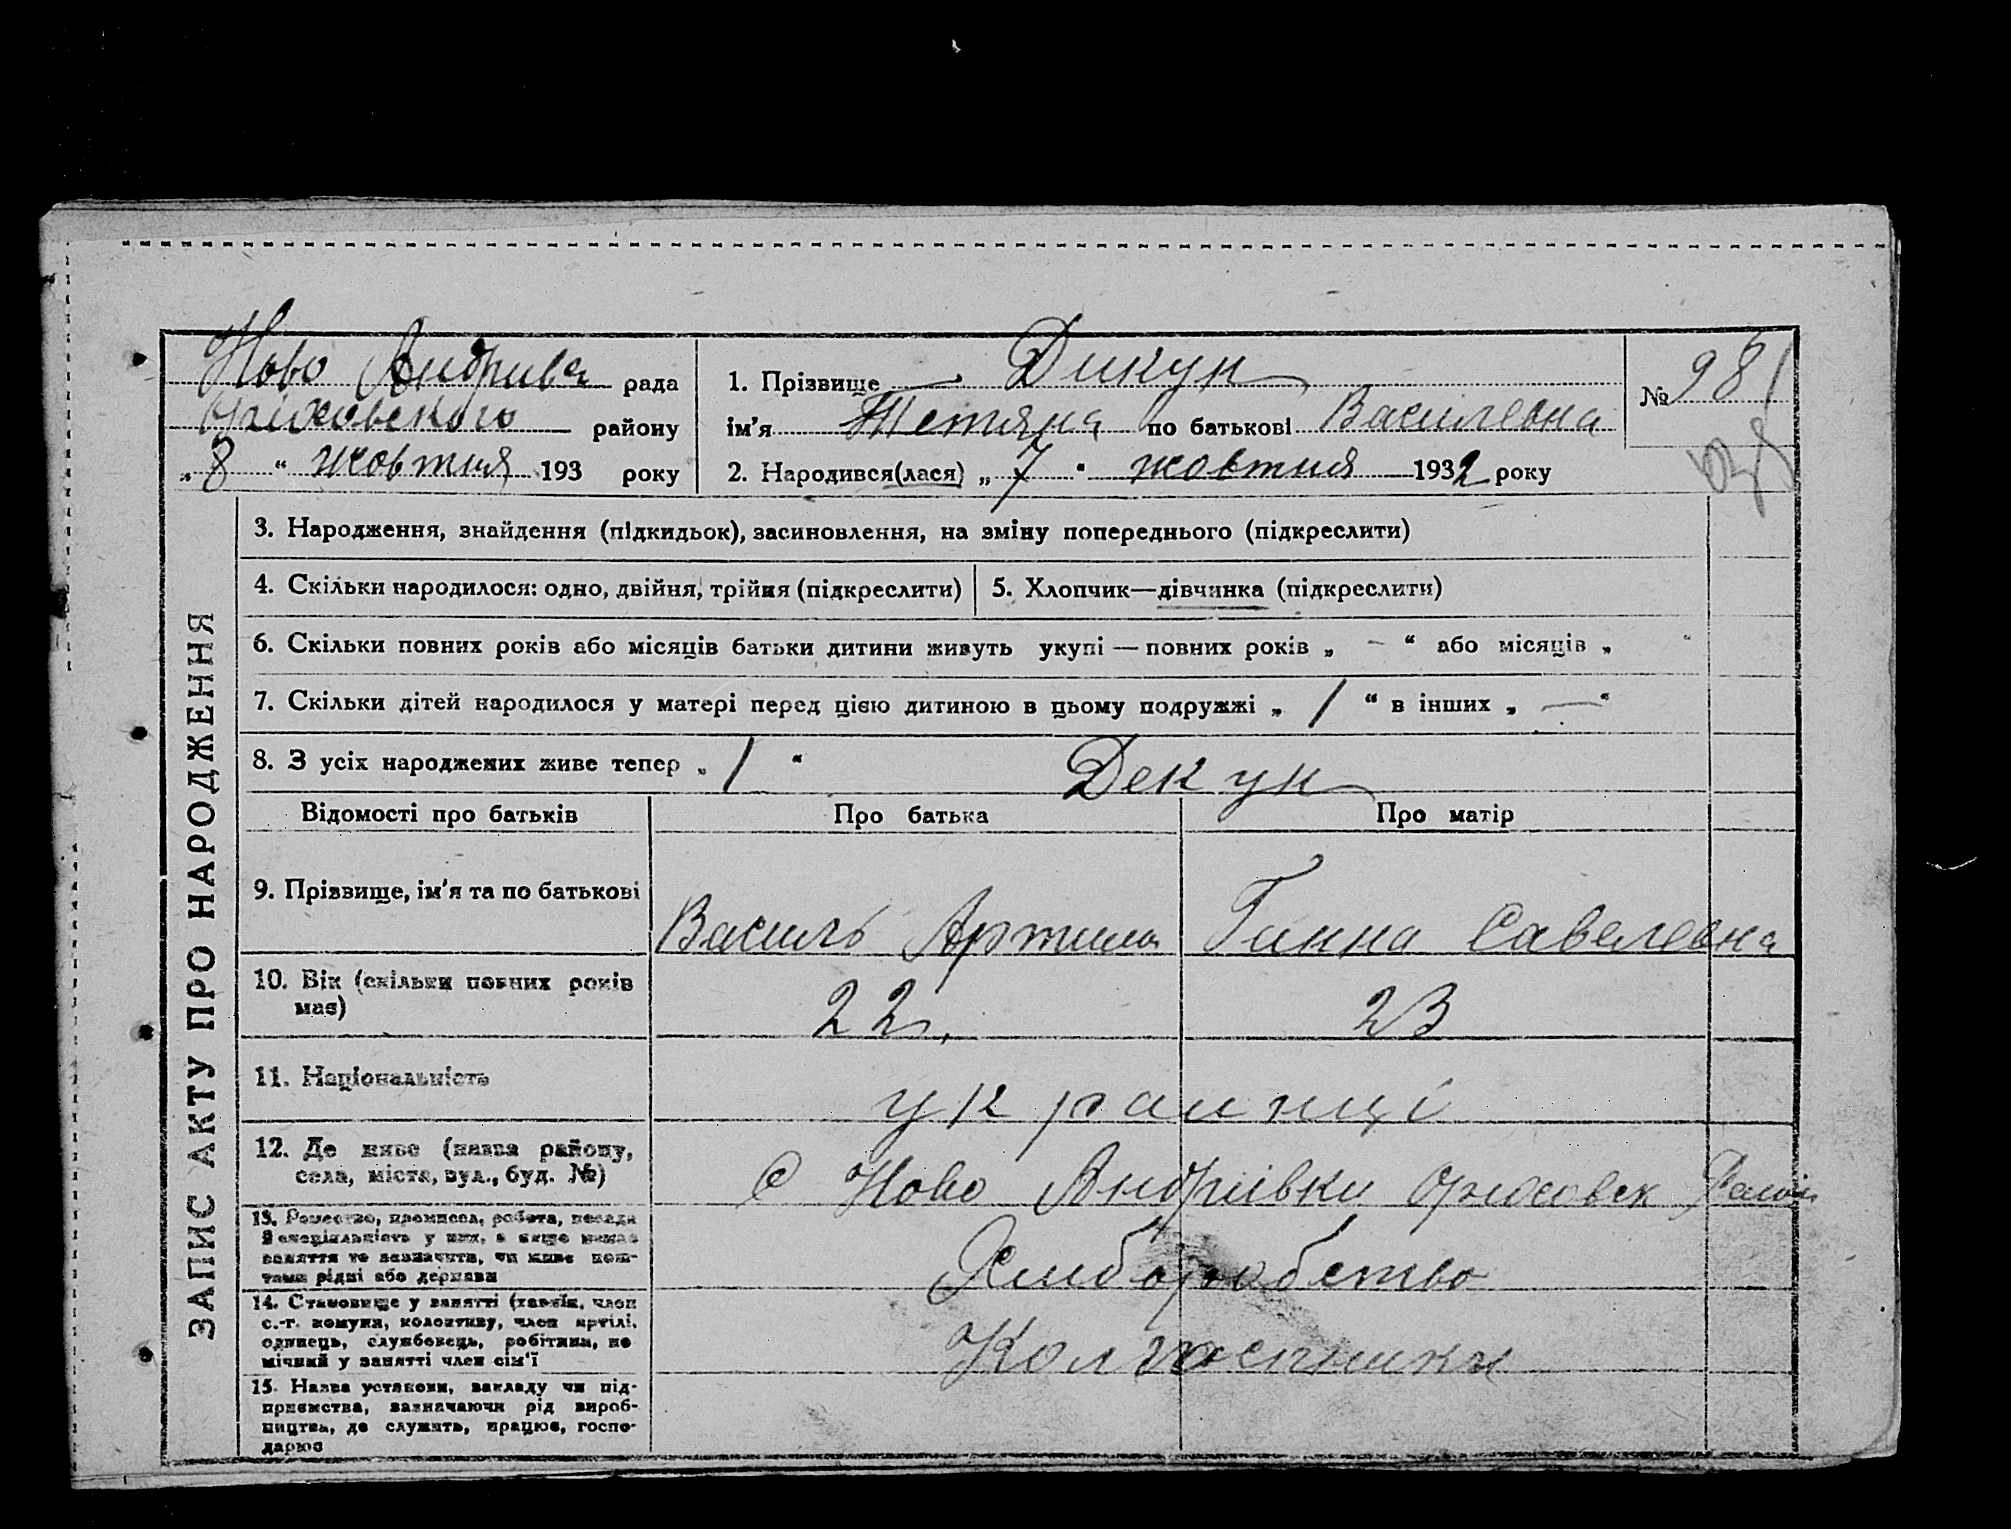 Ново Андривка рада
Оріховського району
„ 8 “ жовтня 193 року
1. Прізвище Дикун
ім'я Тетяна по батькові Василевна
2. Народився(лася) „ 7 “ жовтня 1932 року
№ 98
ЗАПИС АКТУ ПРО НАРОДЖЕННЯ
3. Народження, знайдення (підкидьок), засиновлення, на зміну попереднього (підкреслити)
4. Скільки народилося: одно, двійня, трійня (підкреслити)
5. Хлопчик—дівчинка (підкреслити)
6. Скільки повних років або місяців батьки дитини живуть укупі — повних років „ — “ або місяців „ “
7. Скільки дітей народилося у матері перед цією дитиною в цьому подружжі „ 1 “ в інших „ — “
8. З усіх народжених живе тепер „ 1 “
Декун
Відомості про батьків Про батька Про матір
9. Прізвище, ім'я та по батькові Василь Ганна Савелевна
10. Вік (скільки повних років має) 22 23
11. Національність украинці
12. Де живе (назва району, села, міста, вул., буд. №) с Ново Андрівки Оріховск Район
13. Ремество, промисел, робота, посада й спеціяльність у них, а якщо немає заняття то зазначити, чи живе коштами рідні або держави
Хлиборобство
14. Становище у занятті (хазяїн, член с.-г. комуни, колективу, член артілі, одинець, службовець, робітник, помічний у занятті член сім'ї
Колгоспники
15. Назва установи, закладу чи підприємства, зазначаючи рід виробництва, де служить, працює, господарює